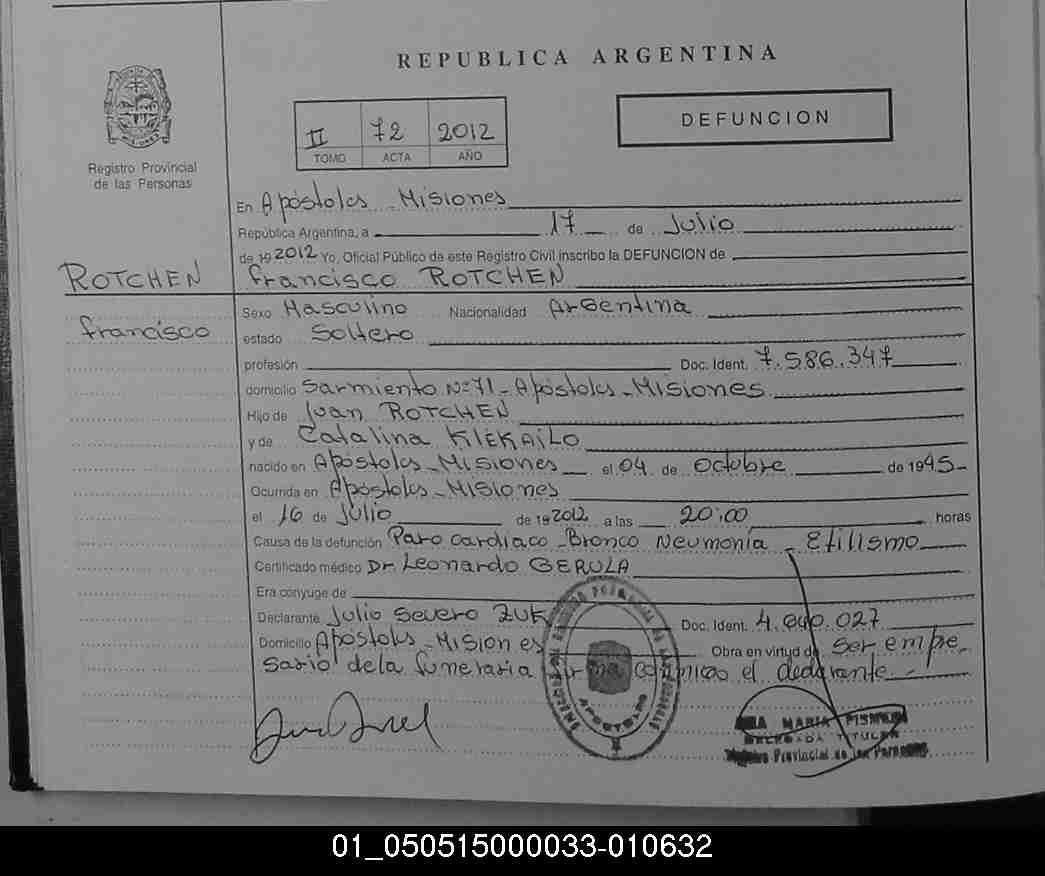 REPUBLICA ARGENTINA
II 72 2012
TOMO ACTA AÑO
DEFUNCION
Registro Provincial
de las Personas
En Apóstoles - Misiones
República Argentina, a 17 de Julio
de 19 2012 Yo, Oficial Público de este Registro Civil inscribo la DEFUNCION de
ROTCHEN
Francisco ROTCHEN
Francisco
Sexo Masculino Nacionalidad Argentina
estado Soltero
profesión Doc. Ident. 7.586.347
domicilio Sarmiento Nº 71 - Apóstoles - Misiones
Hijo de Juan ROTCHEN
y de Catalina KLEKAILO
nacido en Apóstoles - Misiones el 04 de Octubre de 1945-
Ocurrida en Apóstoles - Misiones
el 16 de Julio de 19 2012 a las 20:00 horas
Causa de la defunción Paro cardiaco - Bronco Neumonía - Etilismo
Certificado médico Dr. Leonardo GERULA
Era cónyuge de
Declarante Julio Severo ZUK Doc. Ident. 4.840.027
Domicilio Apóstoles - Misiones Obra en virtud de Ser empre
sario de la funeraria firma conmigo el declarante.-
APOSTOLES
MARIA
DELEGADA TITULAR
Registro Provincial de las Personas
01_050515000033-010632